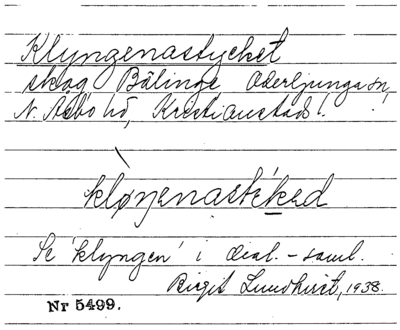 Klyngenastycket
skog Bälinge Oderljunga sn,
N. Åsbo hd, Kristianstads l.
kløŋenastéked
Se 'klyngen' i dial.-saml.
Birgit Lundkvist, 1938.
Nr 5499.